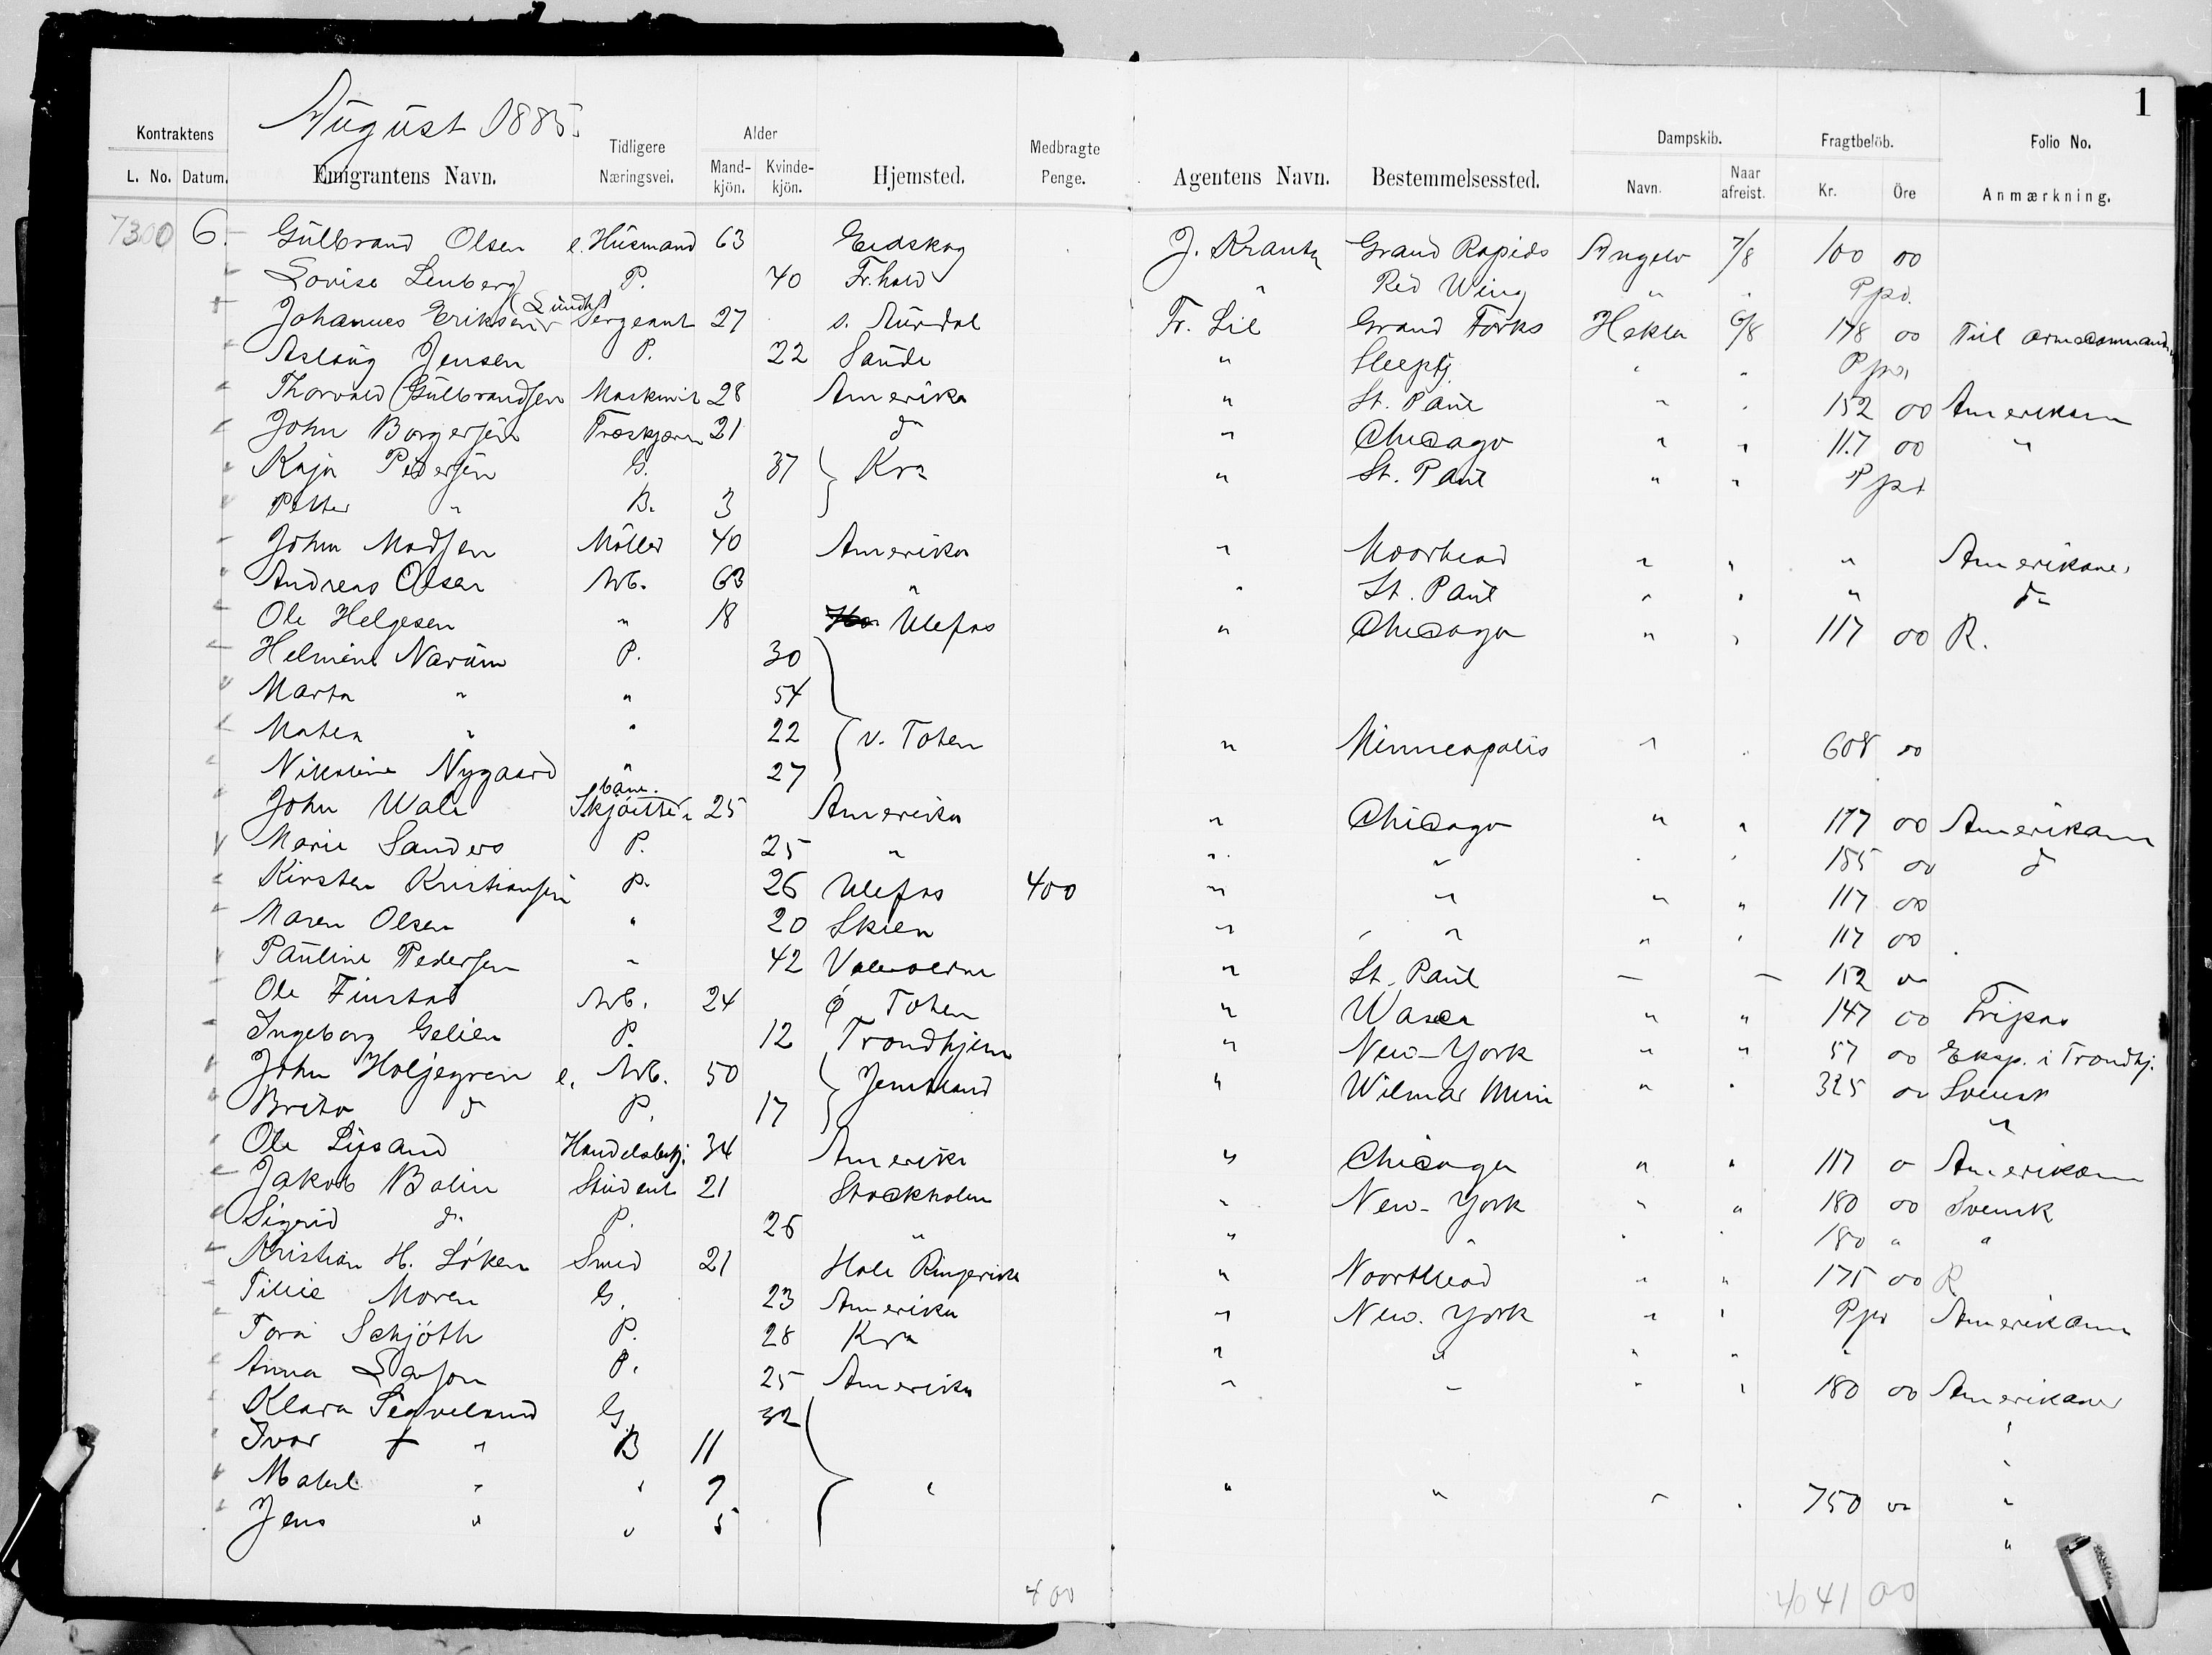 1
August 1885.
Kontraktens L. No. Datum. Emigrantens Navn. Tidligere Næringsvei. Alder Mand-kjön. Kvinde-kjön. Hjemsted. Medbragte Penge. Agentens Navn. Bestemmelsessted. Dampskib. Navn. Naar afreist. Fragtbelöb. Kr. Öre Folio No. Anmærkning.
7300 6. Gulbrand Olsen e. Husmand 63 Eidskog J. Krantz Grand Rapids Angelo 7/8 100 00
Lovise Lenberg P. 40 Fr.hald " Red Wing " " Ppd.
Johannes Eriksen (Lundh) Sergeant 27 s. Aurdal Fr. Lie Grand Forks Hekla 6/8 178 00 Till
Aslaug Jensen P. 22 Sande " " " Ppd
Thorvald Gulbrandsen Maskinist 28 Amerika " St. Paul " " 152 00 Amerikaner
John Borgersen 21 do " Chicago " " 117 00 "
Kaja Pedersen G. 37 Kra " St. Paul " " Ppd
Petter " B. 3
John Madsen Möller 40 Amerika " Moorhead " " " Amerikaner
Andreas Olsen Arb. 63 " " St. Paul " " " do
Ole Helgesen " 18 Ulefos " Chicago " " 117 00 R.
Helmine Narum P. 30
Marta " " 54
Mathea " " 22 v. Toten " Minneapolis " " 608 00
Nikoline Nygaard " 27
John Wale 25 Amerika " Chicago " " 117 00 Amerikaner
Marie Sanders P. 25 " " " " " 155 00 do
Kirsten Kristiansen P. 26 Ulefos 400 " " " " 117 00
Maren Olsen " 20 Skien " " " " 117 00
Pauline Pedersen " 42 " St. Paul — — 152 00
Ole Finstad Arb. 24 Ø Toten " Waseca " " 147 00 Fripas
Ingeborg Gelien P. 12 Trondhjem " New-York " " 57 00 Eksp. i Trondhj.
John Holjegren e. Arb. 50 Jemtland " Wilmar Minn " " 325 00 Svensk
Brita do P. 17 "
Ole Lysand Handelsbetj. 34 Amerika " Chicago " " 117 0 Amerikaner
Jakob Bolin Student 21 Stockholm " New-York " " 180 00 Svensk
Sigrid do P. 26 " " " " " 180 " "
Kristian H. Löken Smed 21 Hole Ringerike " Moorhead " " 175 00 R
Tillie Moren G. 23 Amerika " New-York " " Ppd Amerikaner
Tora Schjöth P. 28 Kra " " " " "
Anna Larson P. 25 Amerika " " " " 180 00 Amerikaner
Klara G. 32 "
Ivar + " B 11 "
" " 7 " " " " " 750 00 "
Jens " " 5 "
400 4041 00